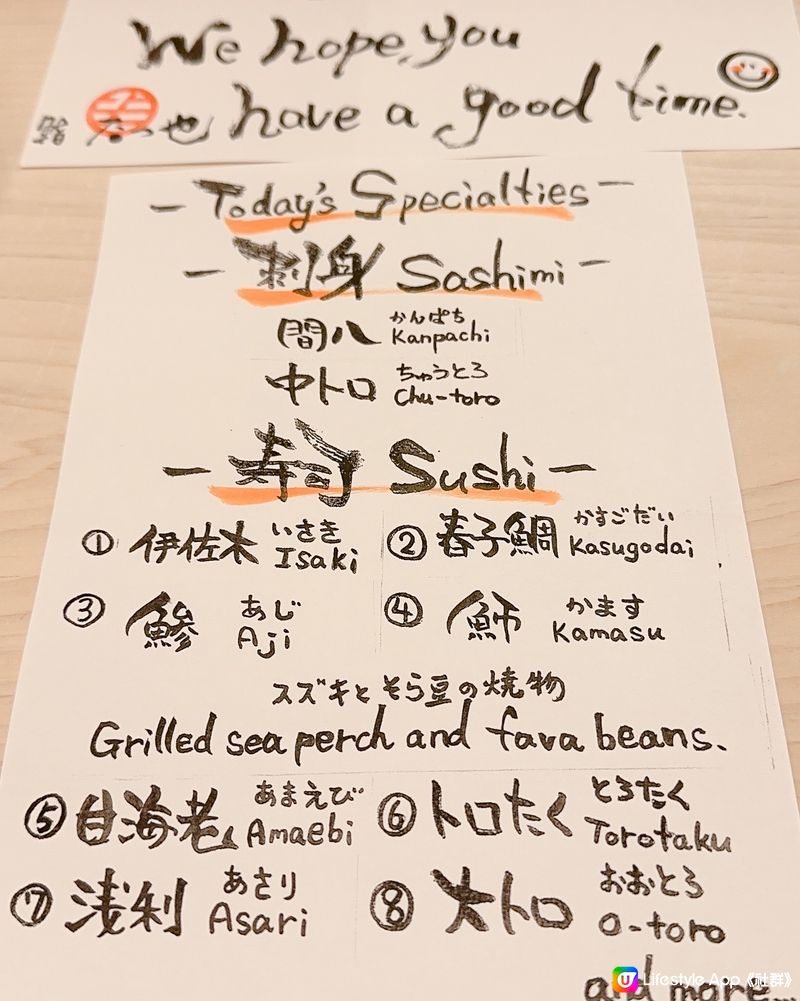 We hope, you
鮨 也 have a good time.
- Today's Specialties -
- 刺身 Sashimi -
間八 かんぱち Kanpachi
中トロ ちゅうとろ Chu-toro
- 寿司 Sushi -
① 伊佐木 いさき Isaki ② 春子鯛 かすごだい Kasugodai
③ 鯵 あじ Aji ④ 魳 かます Kamasu
スズキとそら豆の焼物
Grilled sea perch and fava beans.
⑤ 甘海老 あまえび Amaebi ⑥ トロたく とろたく Torotaku
⑦ 浅利 あさり Asari ⑧ 大トロ おおとろ O-toro
and more...
U Lifestyle App《社群》